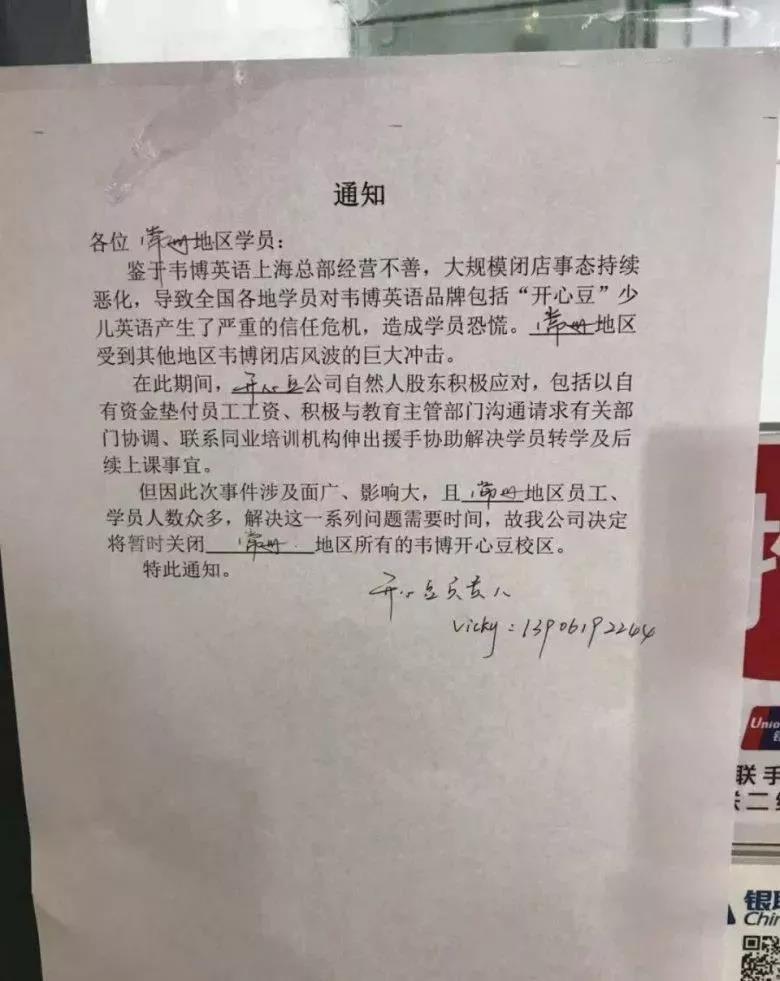 通知
各位 常州地区学员：
鉴于韦博英语上海总部经营不善，大规模闭店事态持续
恶化，导致全国各地学员对韦博英语品牌包括“开心豆”少
儿英语产生了严重的信任危机，造成学员恐慌。常州地区
受到其他地区韦博闭店风波的巨大冲击。
在此期间，开心豆公司自然人股东积极应对，包括以自
有资金垫付员工工资、积极与教育主管部门沟通请求有关部
门协调、联系同业培训机构伸出援手协助解决学员转学及后
续上课事宜。
但因此次事件涉及面广、影响大，且常州地区员工、
学员人数众多，解决这一系列问题需要时间，故我公司决定
将暂时关闭 常州 地区所有的韦博开心豆校区。
特此通知。
开心豆负责人
Vicky：13906192244
Union
联手
二维
银联
Chin